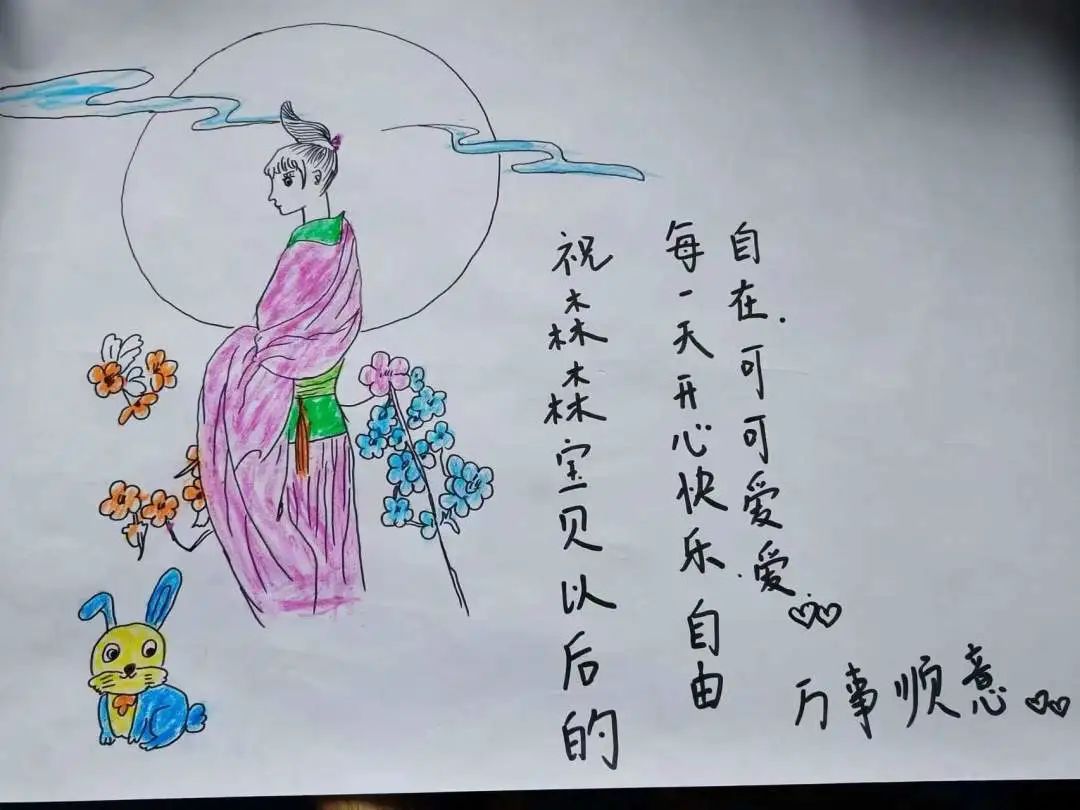 祝森森宝贝以后的
每一天开心快乐.自由
自在.可可爱爱
万事顺意